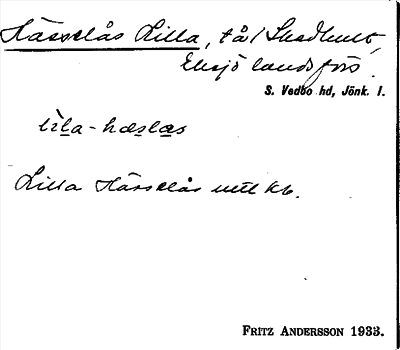 Hässelås Lilla, t å / Skedhult,
Eksjö landsförs.
S. Vedbo hd, Jönk. l.
lìla - hæslæs
Lilla Hässelås utt kb.
FRITZ ANDERSSON 1933.